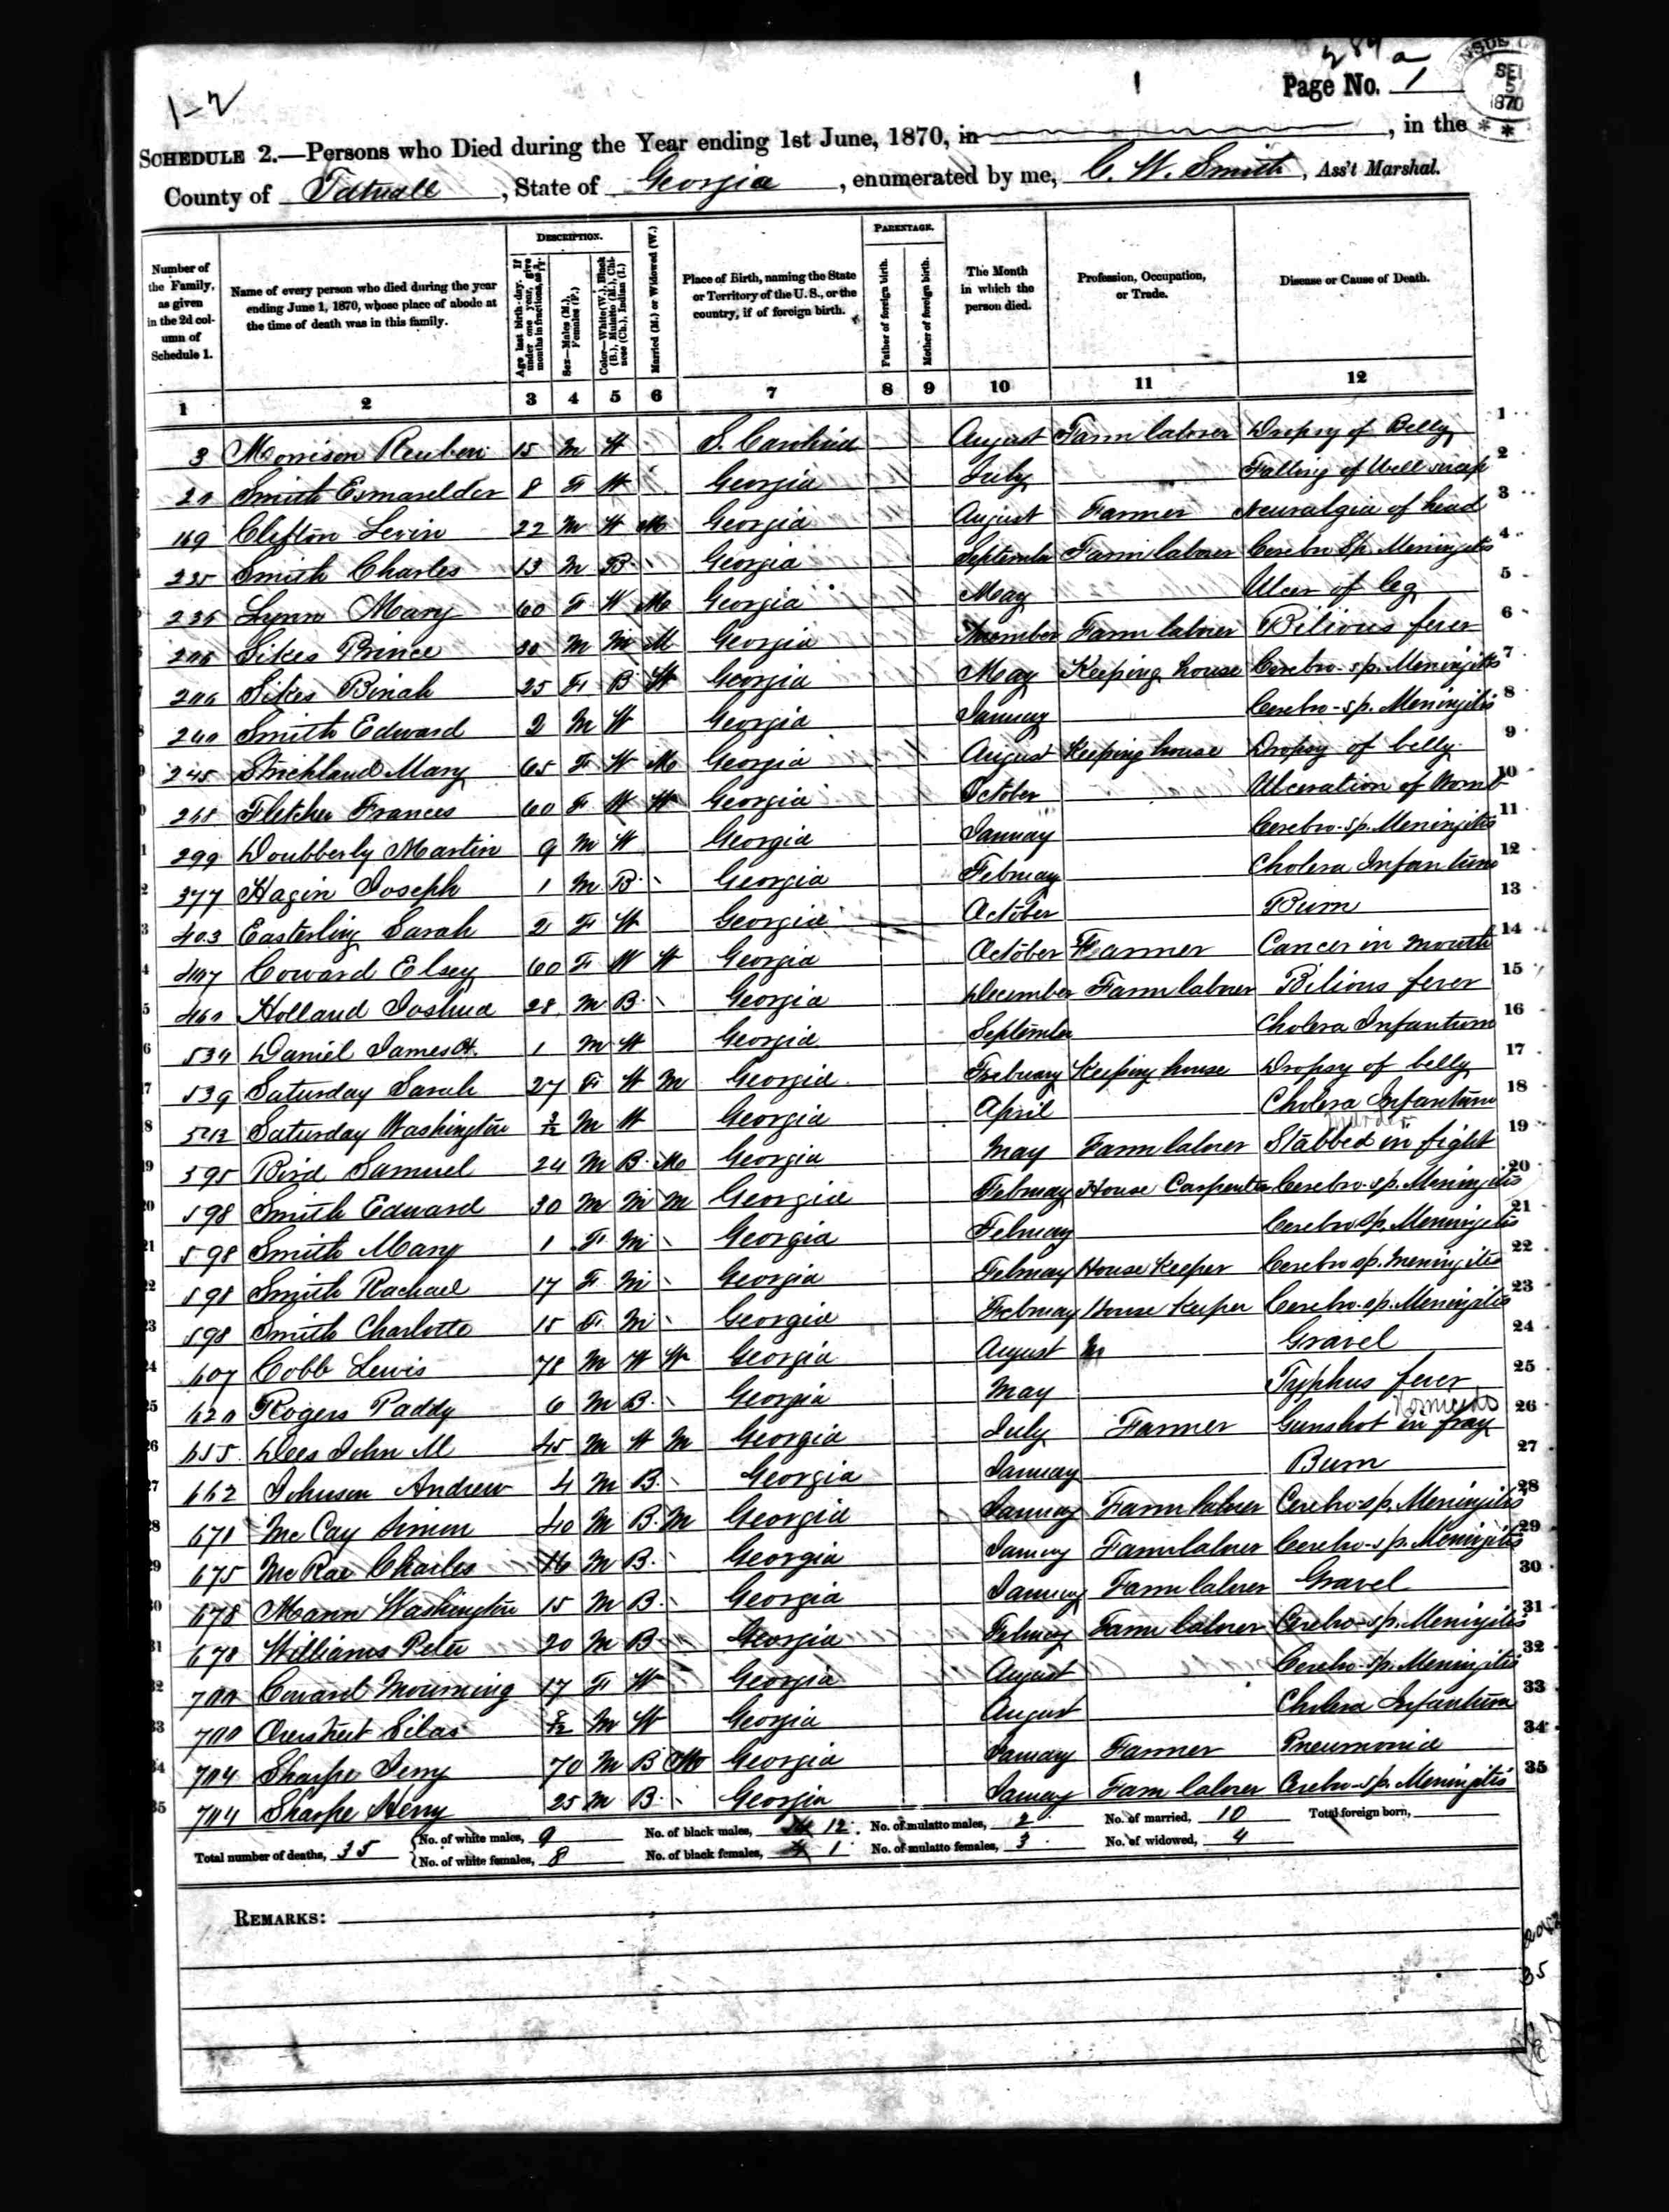 289 a
1-2
1
Page No. 1
SEP 5 1870
* *
SCHEDULE 2.—Persons who Died during the Year ending 1st June, 1870, in , in the
County of Tatnall, State of Georgia, enumerated by me, C. W. Smith, Ass't Marshal.
Number of the Family, as given in the 2d column of Schedule 1.
Name of every person who died during the year ending June 1, 1870, whose place of abode at the time of death was in this family.
DESCRIPTION.
Age last birth-day. If under one year, give months in fractions, as 3/12.
Sex—Males (M.), Females (F.)
Color—White (W.), Black (B.), Mulatto (M.), Chinese (Ch.), Indian (I.)
Married (M.) or Widowed (W.)
Place of Birth, naming the State or Territory of the U. S., or the country, if of foreign birth.
PARENTAGE.
Father of foreign birth.
Mother of foreign birth.
The Month in which the person died.
Profession, Occupation, or Trade.
Disease or Cause of Death.
1 2 3 4 5 6 7 8 9 10 11 12
3 Morrison Reuben 15 M W S. Carolina August Farm laborer Dropsy of Belly 1
Smith Esmarelder 8 F W Georgia July Falling of Well 2
169 Clifton Levin 22 M W M Georgia August Farmer Neuralgia of head 3
235 Smith Charles 13 M B Georgia September Farm laborer Cerebro Sp. Meningitis 4
236 Lynn Mary 60 F W M Georgia May Ulcer of leg 5
Sikes Prince 30 M M M Georgia November Farm laborer Bilious fever 6
Sikes Binah 25 F B W Georgia May Keeping house Cerebro-sp. Meningitis 7
240 Smith Edward 2 M W Georgia January Cerebro-sp. Meningitis 8
245 Strickland Mary 65 F W M Georgia August Keeping house Dropsy of belly 9
268 Fletcher Frances 60 F W W Georgia October Ulceration of Womb 10
299 Doubberly Martin 9 M W Georgia January Cerebro-sp. Meningitis 11
377 Hagin Joseph 1 M B Georgia February Cholera Infantum 12
403 Easterling Sarah 2 F W Georgia October Burn 13
447 Coward Elsey 60 F W W Georgia October Farmer Cancer in mouth 14
460 Holland Joshua 28 M B Georgia December Farm laborer Bilious fever 15
534 Daniel James H. 1 M W Georgia September Cholera Infantum 16
539 Saturday Sarah 27 F W M Georgia February Keeping house Dropsy of belly 17
542 Saturday Washington M W Georgia April Cholera Infantum 18
murder
595 Bird Samuel 24 M B M Georgia May Farm laborer Stabbed in fight 19
598 Smith Edward 30 M M M Georgia February House Carpenter Cerebro-sp. Meningitis 20
598 Smith Mary 1 F M Georgia February Cerebro Sp. Meningitis 21
598 Smith Rachael 17 F M Georgia February House Keeper Cerebro sp. Meningitis 22
598 Smith Charlotte 15 F M Georgia February House Keeper Cerebro-sp. Meningitis 23
607 Cobb Lewis 78 M W W Georgia August Gravel 24
620 Rogers Paddy 6 M B Georgia May Typhus fever 25
Homicide
655 Dees John M 45 M W M Georgia July Farmer Gunshot in fray 26
662 Johnson Andrew 4 M B Georgia January Burn 27
671 McCay Simon 40 M B M Georgia January Farm laborer Cerebro-sp. Meningitis 28
675 McRae Charles 16 M B Georgia January Farm laborer Cerebro-sp. Meningitis 29
678 Mann Washington 15 M B Georgia January Farm laborer Gravel 30
678 Williams Peter 20 M B Georgia February Farm laborer Cerebro-sp. Meningitis 31
700 Coward Mourning 17 F W Georgia August Cerebro-sp. Meningitis 32
700 Overstreet Silas M W Georgia August Cholera Infantum 33
704 Sharpe Jerry 70 M B M Georgia January Farmer Pneumonia 34
704 Sharpe Henry 25 M B Georgia January Farm laborer Cerebro-sp. Meningitis 35
Total number of deaths, 35
No. of white males, 9 No. of black males, 12. No. of mulatto males, 2 No. of married, 10 Total foreign born,
No. of white females, 8 No. of black females, 1 No. of mulatto females, 3 No. of widowed, 4
REMARKS:
35